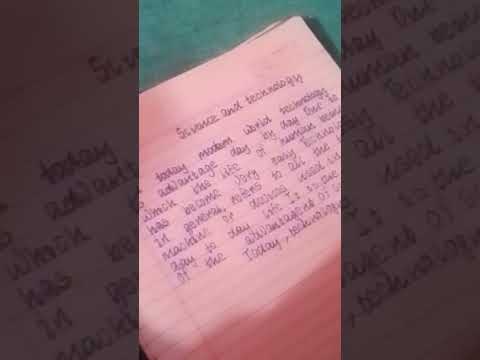 Science and technology
today modern world technology
advantage day by day Due to
which the life of human being
has become very easy Technology
in general, refers to all the
machine or devices used in
day to day life. It is one
of the advantaged of
Today, technology